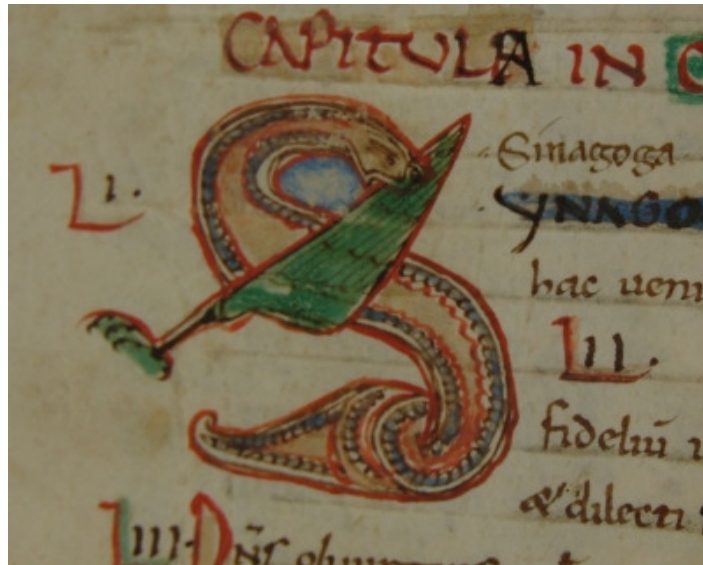 CAPITULA IN C
LI. Sinagoga
SYNAGO
hac ueni
LII.
fideliū
& dilecti
LIII. Dn̄s